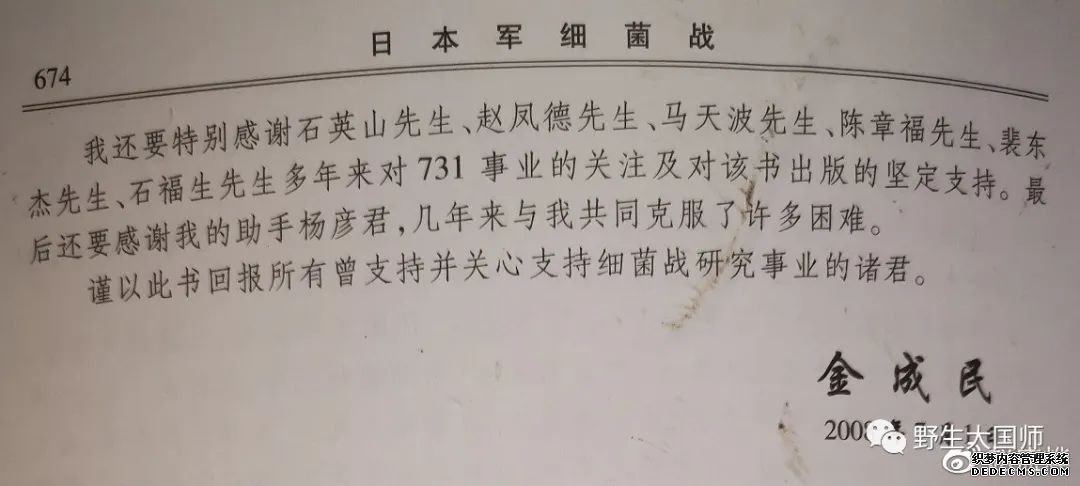 日本军细菌战
674
我还要特别感谢石英山先生、赵凤德先生、马天波先生、陈章福先生、裴东
杰先生、石福生先生多年来对731事业的关注及对该书出版的坚定支持。最
后还要感谢我的助手杨彦君,几年来与我共同克服了许多困难。
谨以此书回报所有曾支持并关心支持细菌战研究事业的诸君。
金成民
2008
野生大国师
织梦内容管理系统
DEDECMS.COM